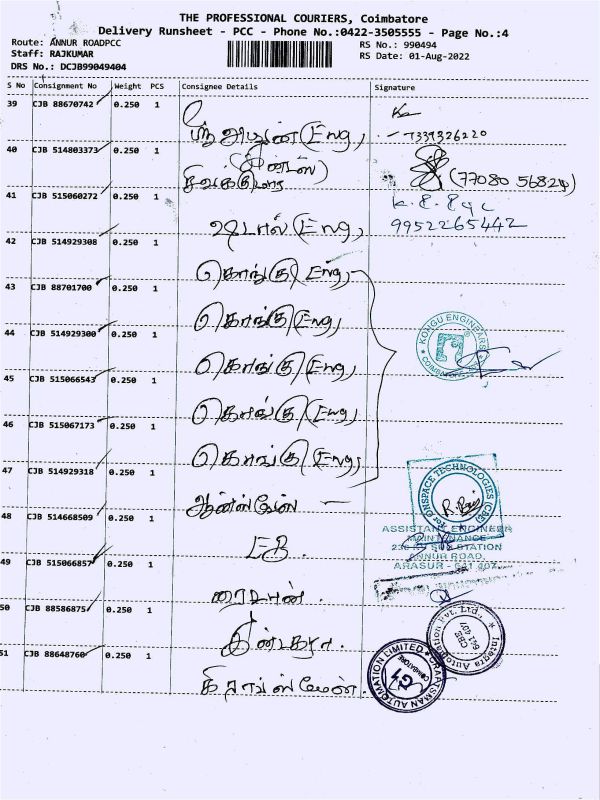 THE PROFESSIONAL COURIERS, Coimbatore
Delivery Runsheet - PCC - Phone No.:0422-3505555 - Page No.:4
Route: ANNUR ROADPCC
RS No.: 990494
Staff: RAJKUMAR
RS Date: 01-Aug-2022
DRS No.: DCJB99049404
S No Consignment No Weight PCS Consignee Details Signature
39 CJB 88670742 0.250 1
(Eng,
7339326220
40 CJB 514803373 0.250 1
சிவக்குமார
(77080 56824)
41 CJB 515060272 0.250 1
9952265442
(Eng,
42 CJB 514929308 0.250 1
கொங்கு (Eng,
43 CJB 88701700 0.250 1
கொங்கு (Eng,
44 CJB 514929300 0.250 1
KONGU ENGINEARS
COIMBATORE
கொங்கு (Eng,
45 CJB 515066543 0.250 1
கொங்கு (Eng,
46 CJB 515067173 0.250 1
கொங்கு (Eng,
47 CJB 514929318 0.250 1
For ONSPACE TECHNOLOGIES (CBE)
48 CJB 514668509 0.250 1
ASSISTANT ENGINEER
MAINTENANCE
SUB STATION
EB.
49 CJB 515066857 0.250 1
ANNUR ROAD,
ARASUR - 641 407
50 CJB 88586875 0.250 1
Integra Automation Pvt. Ltd.,
CBE
641 407
51 CJB 88648760 0.250 1
CRAFTSMAN AUTOMATION LIMITED
G1
COIMBATORE